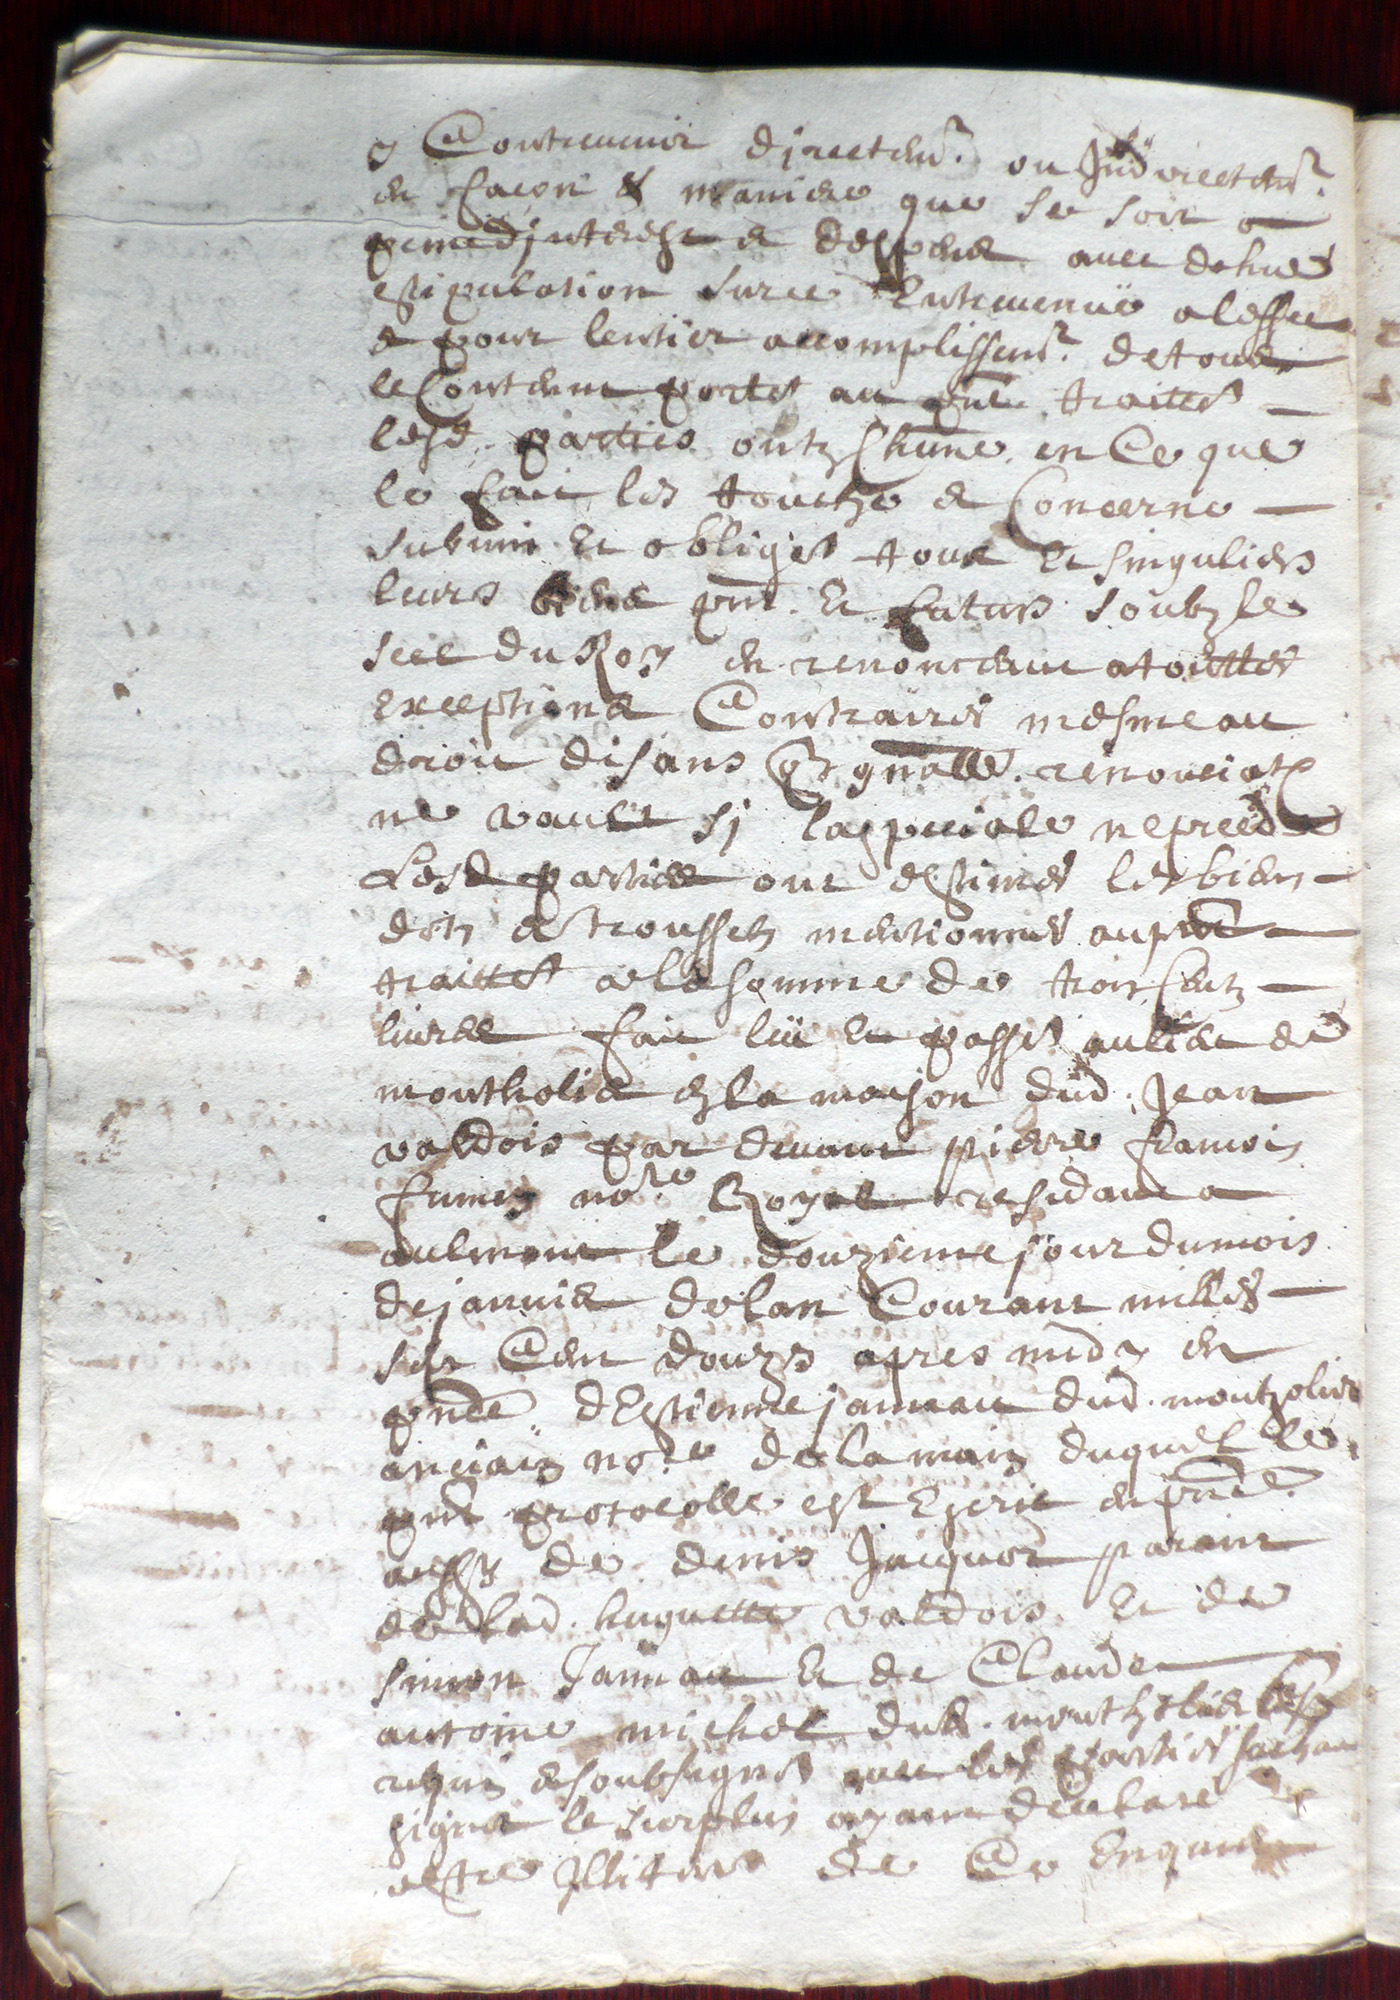 y Contrevenir directem.t ou Jndirectem.t
en facon et maniere que se soit a
peine d'interest et despens avec dehue
estipulation surce Entrevenüe aleffect
et pour lentier accomplissem.t de tout
le Contenu porter au pnt traittes
lesd. parties ontz Chune. en Ce que
le fait les touche et Concerne
submis Et obliges tous Et singuliers
leurs biens pnt. Et futurs soubz le
scel du Roy en renonceant a touttes
exceptions Contraires mesme au
droit disans q gnalle. renonciat
ne vault sj laspeciale ne precede
Lesd parties ont estimes les biens
dotz et troussel mentionnes au pnt
traittes ala somme de trois Centz
livres fait lü Et passes au lieu de
montholie en la maison dud. Jean
valdois par devant pierre francois
fumey nore Royal residant a
aulmont le douzieme jour du mois
de janvie delan Courant milles
sept Cent douzs apres midy en
pnce. dEstienne janneau dud. montholie
anciain nore de la main duquel le
pnt protocolle est Escrit en pnce.
aussy de denis Jacquot parain
de lad. huguette valdois Et de
simon Janneau Et de Claude
antoine michel dud. montholie
requis et soubsignes avec les parties sachant
signer le surplus ayant declare
estre Jlliteres de Ce Enquis